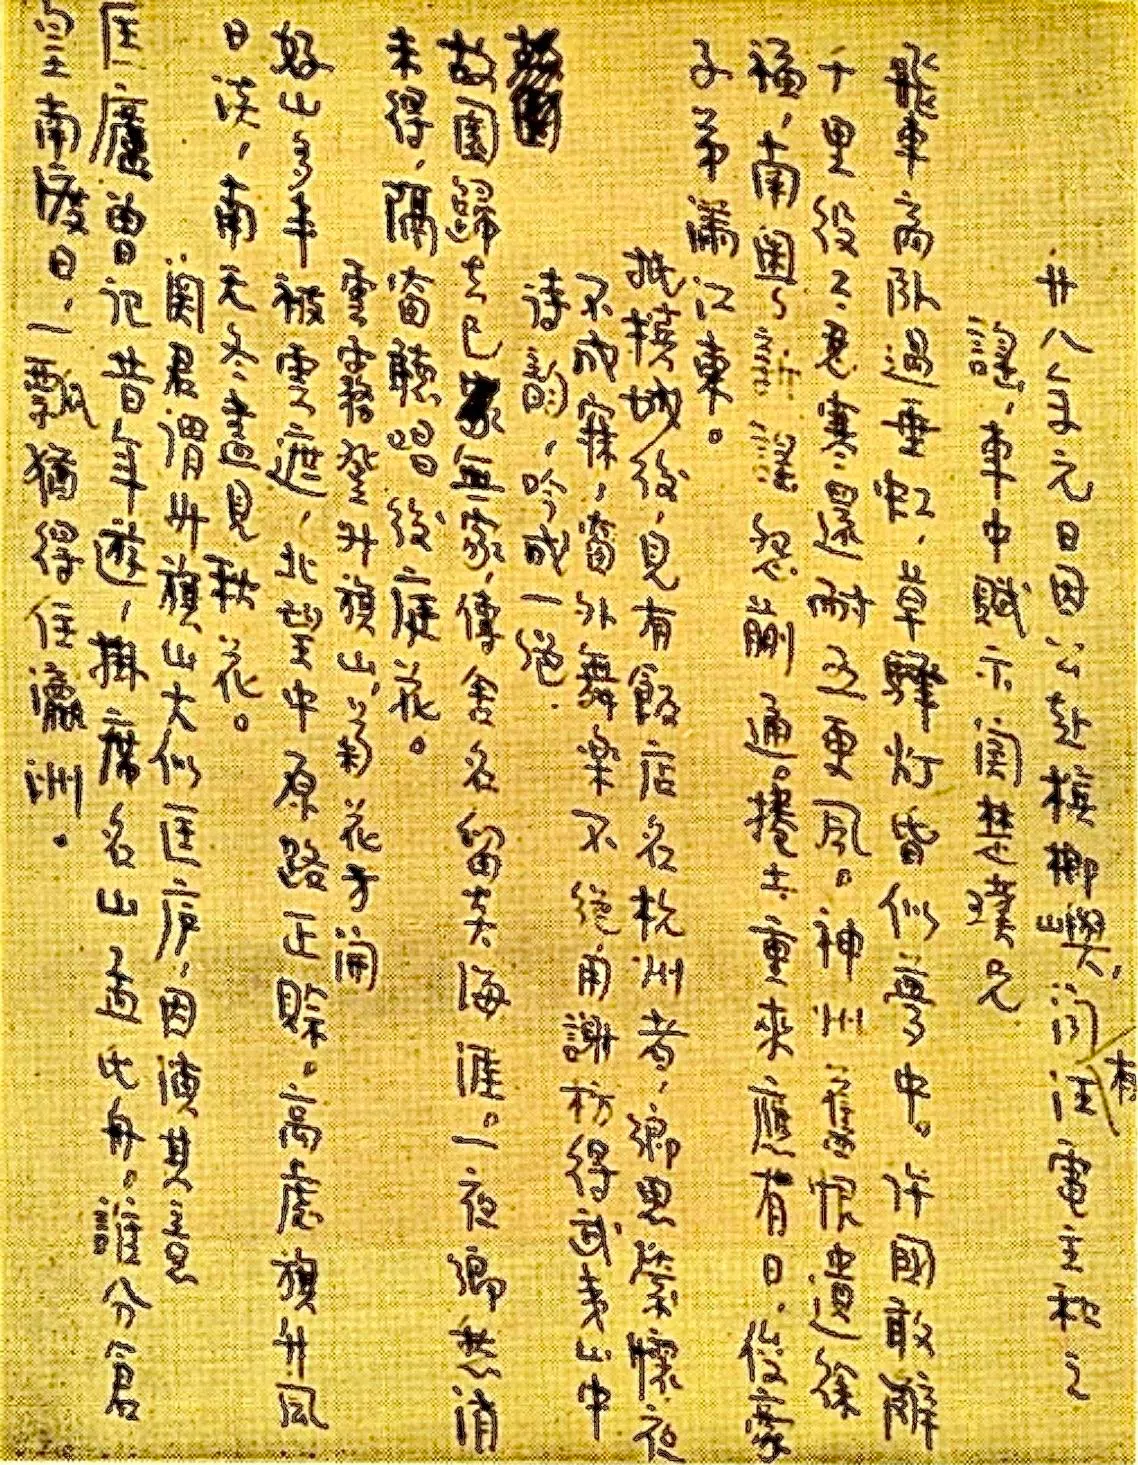 廿八年元日因公赴檳榔嶼,汪電主粒之
車中賦示閨楚璞兄
飛車高臥過垂虹,草驛灯昏似夢中。許國敢辭
千里役,忍寒還耐五更風。神州舊恨遺徐
福,南國新謠怨蒯通。捲土重來應有日,俊豪
子弟滿江東。
抵檳城後,見有飯店名杭州者,鄉思縈懷,夜
不成寐,窗外舞樂不絕,用謝枋得武夷山中
詩韵,吟成一絕.
故園歸去已無家,傳舍名留炎海涯。一夜鄉愁消
未得,隔窗聽唱後庭花。
雲霧登升旗山,菊花方開
好山多半被雲遮,北望中原路正賒。高處旗升風
日淡,南天冬盡見秋花。
閨君謂升旗山大似匡廬,因演其意
匡廬曾記昔年遊,掛席名山孟氏舟。誰分倉
皇南渡日,一瓢猶得住瀛洲。